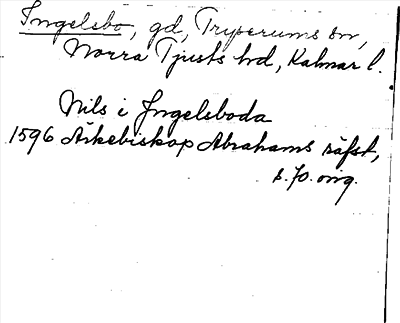 Ingelsbo, gd, Tryserums sn,
Norra Tjusts hd, Kalmar l.
Nils i Ingelsboda
1596 Ärkebiskop Abrahams räfst,
s. 70. orig.